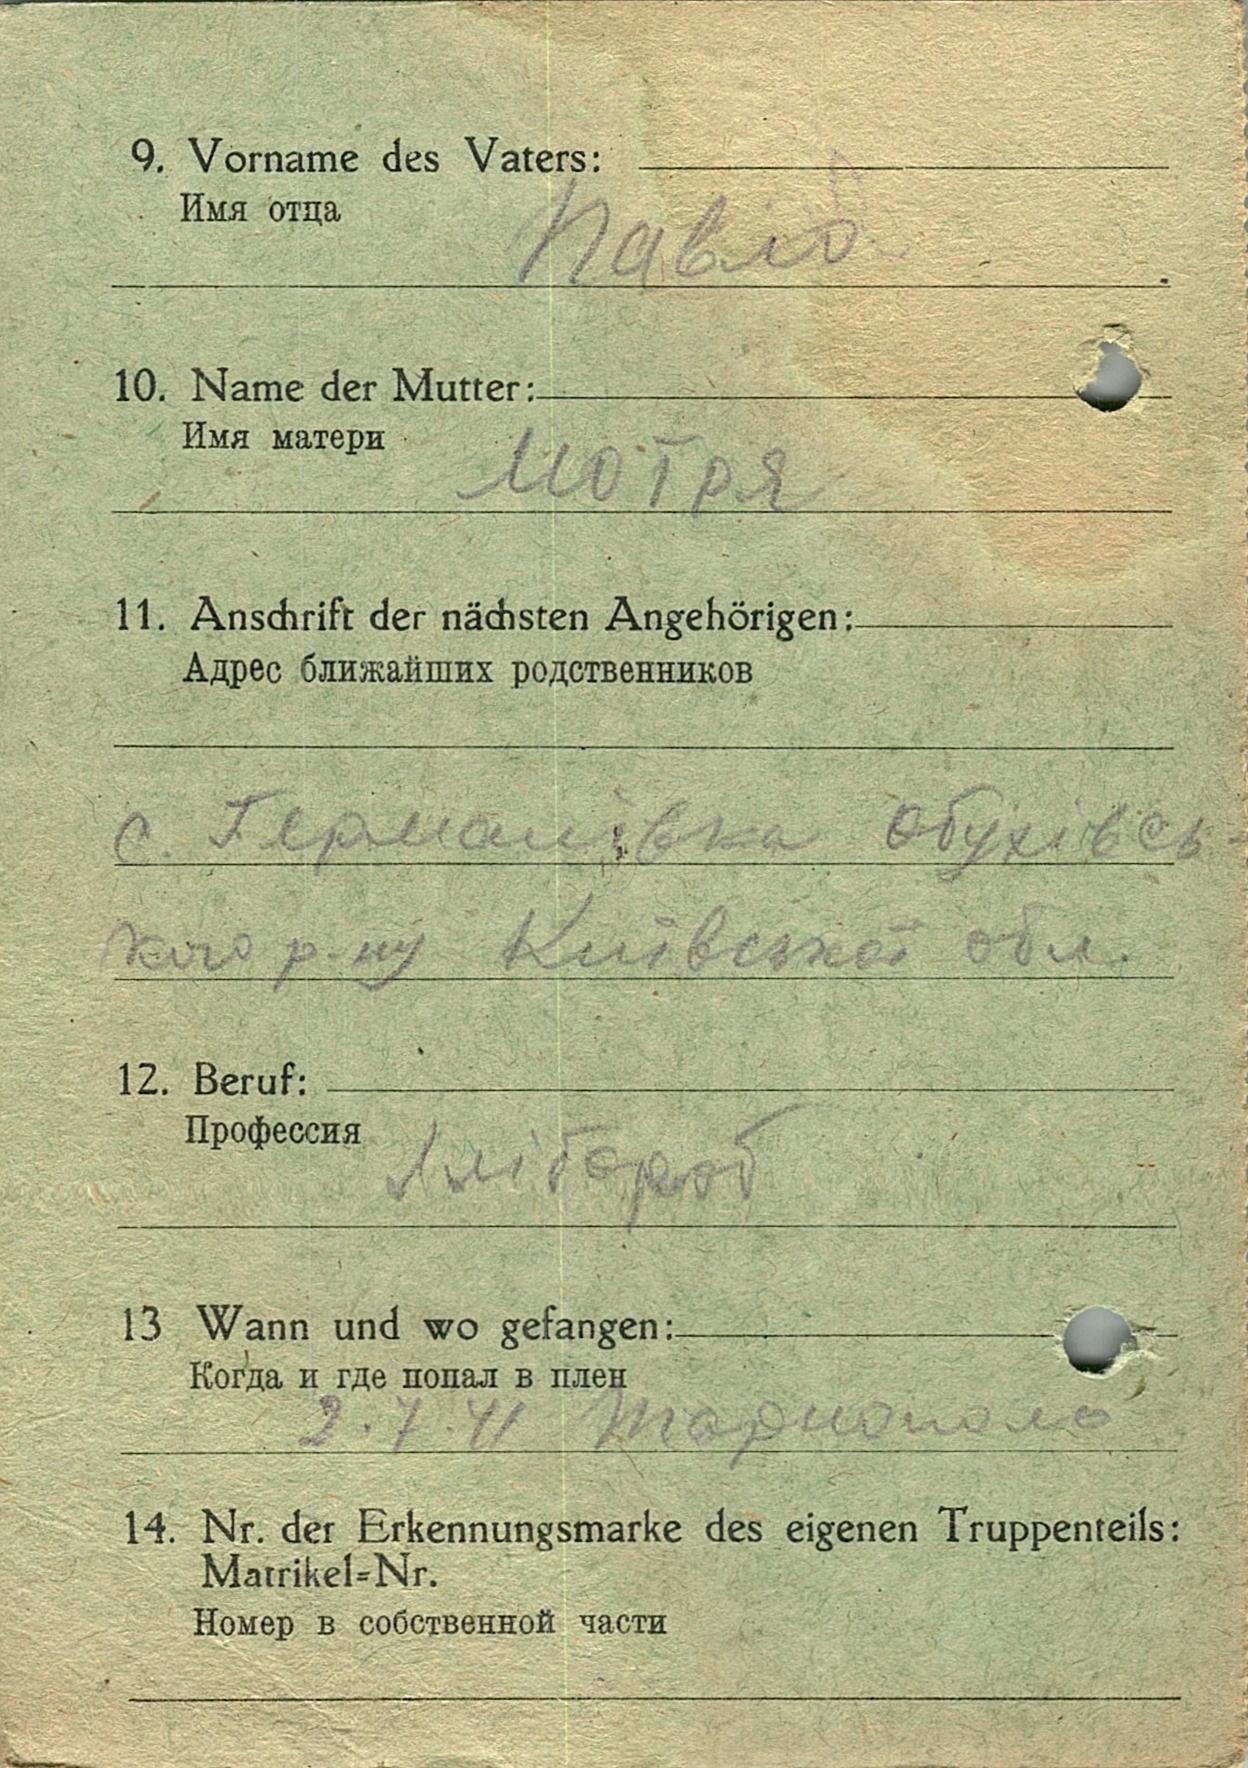 9. Vorname des Vaters:
Имя отца
Павло
10. Name der Mutter:
Имя матери
Мотря
11. Anschrift der nächsten Angehörigen:
Адрес ближайших родственников
с. Германівка Обухівсь-
кого р-ну Київської обл.
12. Beruf:
Профессия
Хлібороб
13 Wann und wo gefangen:
Когда и где попал в плен
2.7.41 Тарнополь
14. Nr. der Erkennungsmarke des eigenen Truppenteils:
Matrikel-Nr.
Номер в собственной части